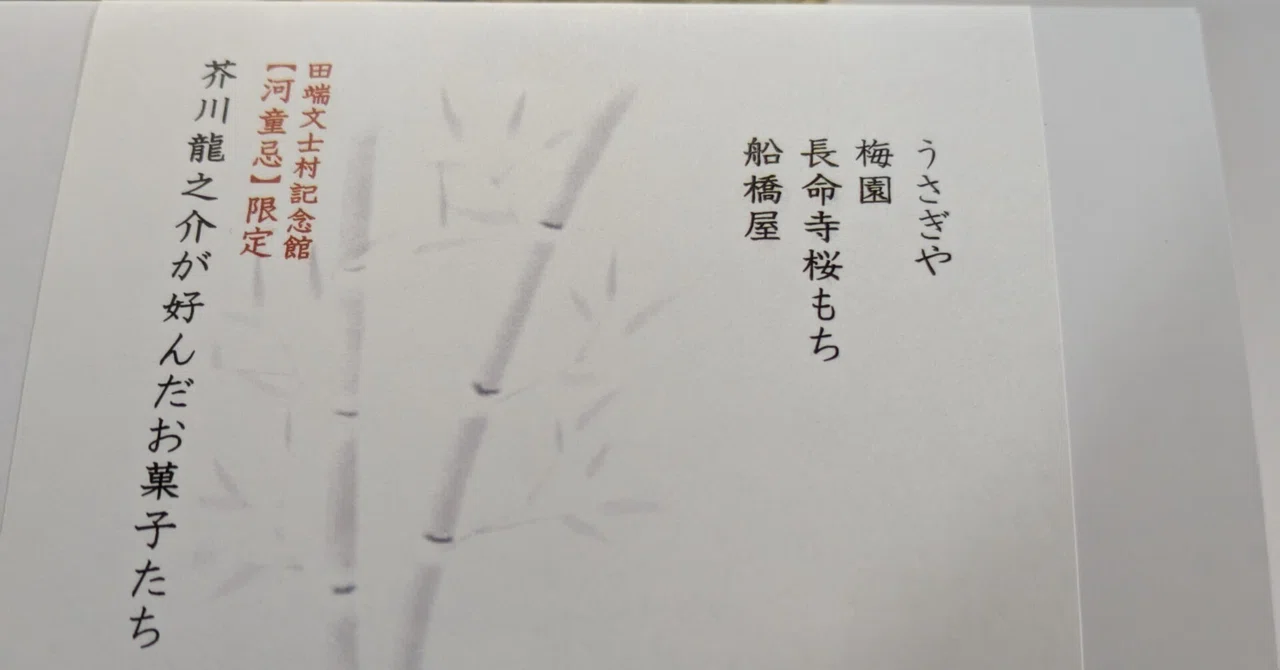 うさぎや
梅園
長命寺桜もち
船橋屋
田端文士村記念館
【河童忌】限定
芥川龍之介が好んだお菓子たち